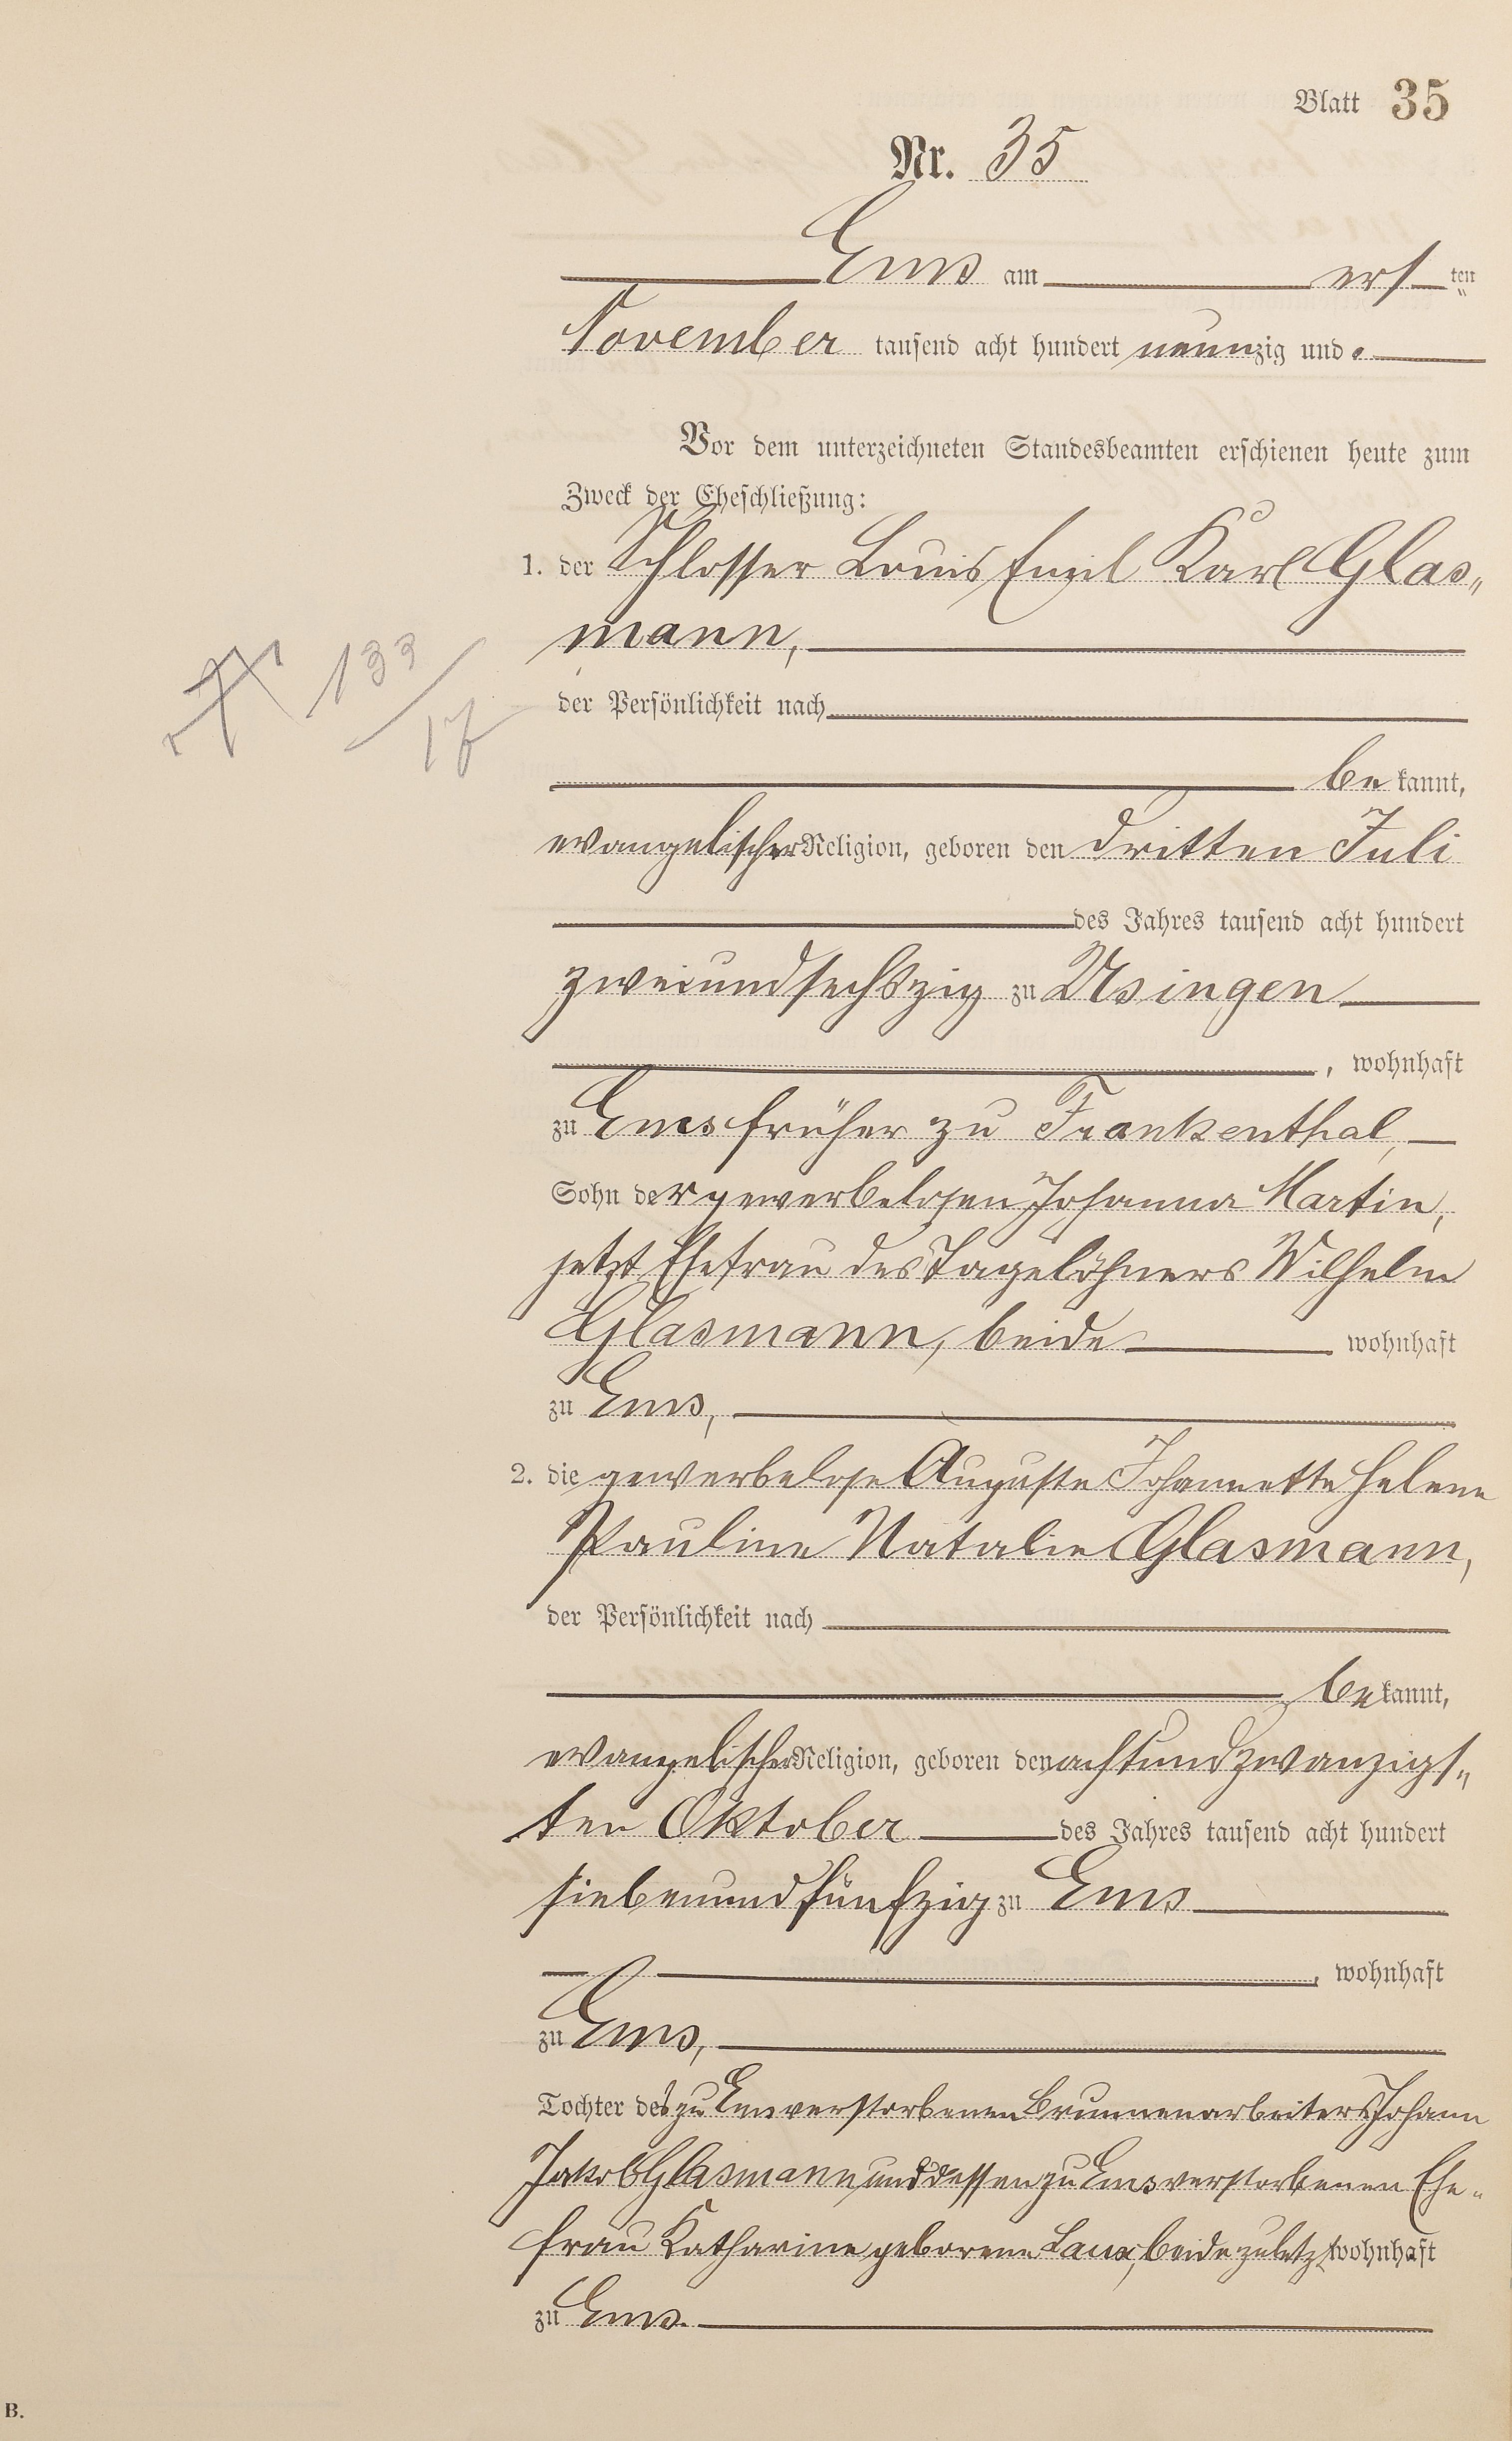 Blatt 35
Nr. 35
Ems am ersten
November tausend acht hundert neunzig und
Vor dem unterzeichneten Standesbeamten erschienen heute zum
Zweck der Eheschließung:
1. der Schlosser Louis Emil Karl Glas„
mann,
der Persönlichkeit nach
bekannt,
evangelischer Religion, geboren den dritten Juli
des Jahres tausend acht hundert
zweiundsechszig zu Usingen
, wohnhaft
zu Ems früher zu Frankenthal,
Sohn der gewerbelosen Johanna Martin,
jetzt Ehefrau des Tagelöhners Wilhelm
Glasmann, beide wohnhaft
zu Ems,
133
17
2. die gewerbelose Auguste Johannette Helene
Pauline Natalie Glasmann,
der Persönlichkeit nach
bekannt,
evangelischer Religion, geboren den achtundzwanzigs„
ten Oktober des Jahres tausend acht hundert
siebenundfünfzig zu Ems
, wohnhaft
zu Ems,
Tochter des zu Ems verstorbenen Brunnenarbeiters Johann
Jakob Glasmann und dessen zu Ems verstorbenen Ehe„
frau Katharine geborene Laux, beide zuletzt wohnhaft
zu Ems.
B.